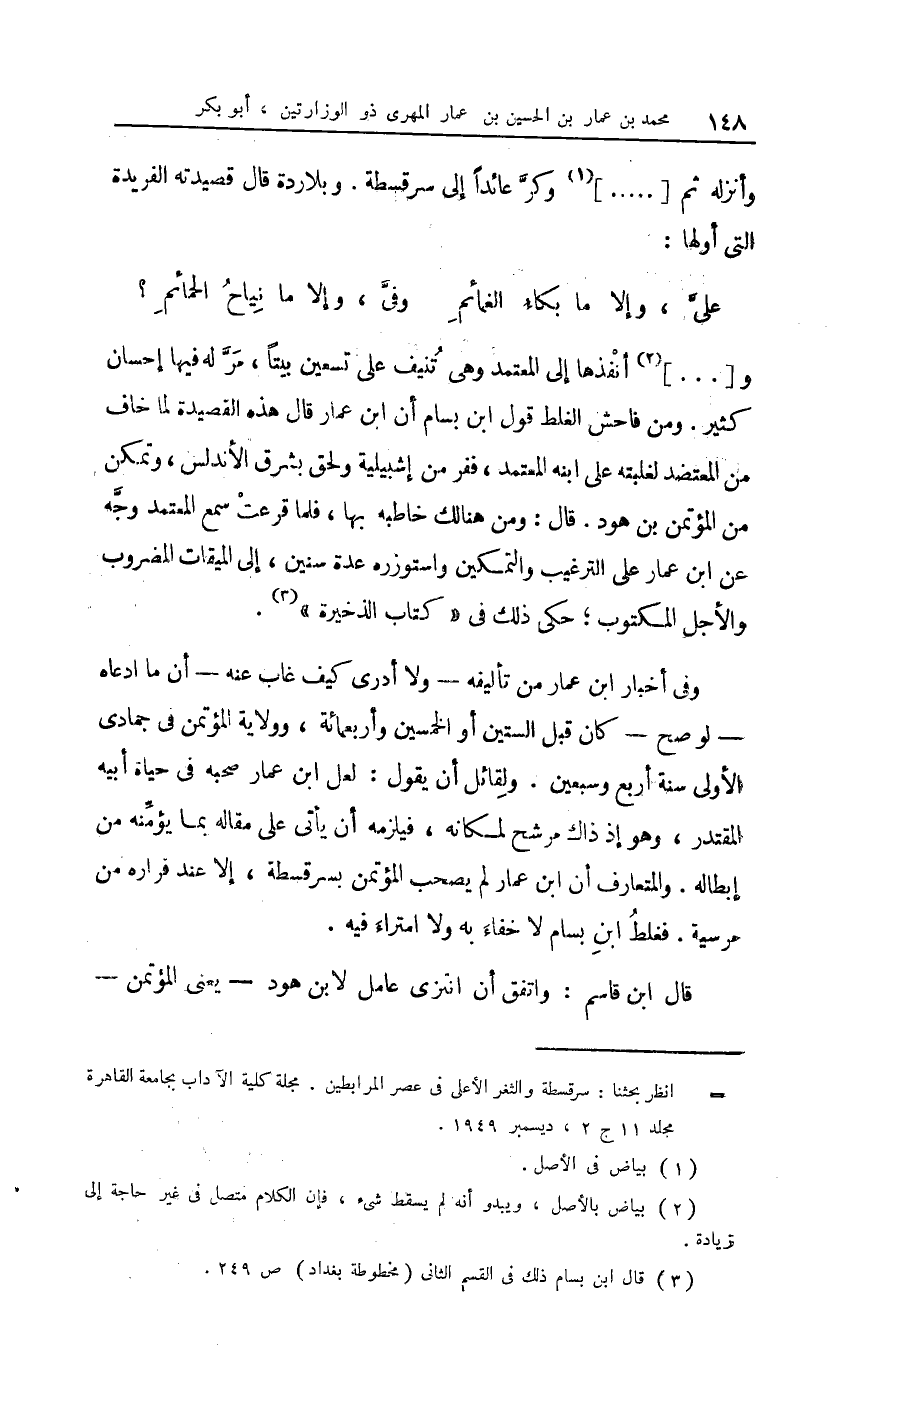 ١٤٨ محمد بن عمار بن الحسين بن عمار المهرى ذو الوزارتين ، أبو بكر
وأنزله ثم [ ..... ](١) وكرَّ عائداً إلى سرقسطة . وبلاردة قال قصيدته الفريدة
التى أولها :
علىَّ ، وإلا ما بكاء الغمائمِ وفىَّ ، وإلا ما نِياحُ الحمائمِ ؟
و[ ... ](٢) أنْفذها إلى المعتمد وهى تُنيف على تسعين بيتاً ، مَرَّ له فيها إحسان
كثير . ومن فاحش الغلط قول ابن بسام أن ابن عمار قال هذه القصيدة لما خاف
من المعتضد لغلبته على ابنه المعتمد ، ففر من إشبيلية ولحق بشرق الأندلس ، وتمكن
من المؤتمن بن هود . قال : ومن هنالك خاطبه بها ، فلما قرعتْ سمع المعتمد وجَّه
عن ابن عمار على الترغيب والتمكين واستوزره عدة سنين ، إلى الميقات المضروب
والأجل المكتوب ؛ حكى ذلك فى « كتاب الذخيرة »(٣) .
وفى أخبار ابن عمار من تأليفه — ولا أدرى كيف غاب عنه — أن ما ادعاه
— لو صح — كان قبل الستين أو الخمسين وأربعمائة ، وولاية المؤتمن فى جمادى
الأولى سنة أربع وسبعين . ولقائل أن يقول : لعل ابن عمار صحبه فى حياة أبيه
المقتدر ، وهو إذ ذاك مرشح لمكانه ، فيلزمه أن يأتى على مقاله بما يؤمِّنه من
إبطاله . والمتعارف أن ابن عمار لم يصحب المؤتمن بسرقسطة ، إلا عند فراره من
مرسية . فغلطُ ابنِ بسام لا خفاءَ به ولا امتراء فيه .
قال ابن قاسم : واتفق أن انتزى عامل لابن هود — يعنى المؤتمن —
= انظر بحثنا : سرقسطة والثغر الأعلى فى عصر المرابطين . مجلة كلية الآداب بجامعة القاهرة
مجلد ١١ ج ٢ ، ديسمبر ١٩٤٩ .
(١) بياض فى الأصل .
(٢) بياض بالأصل ، ويبدو أنه لم يسقط شىء ، فإن الكلام متصل فى غير حاجة إلى
زيادة .
(٣) قال ابن بسام ذلك فى القسم الثانى (مخطوطة بغداد) ص ٢٤٩ .